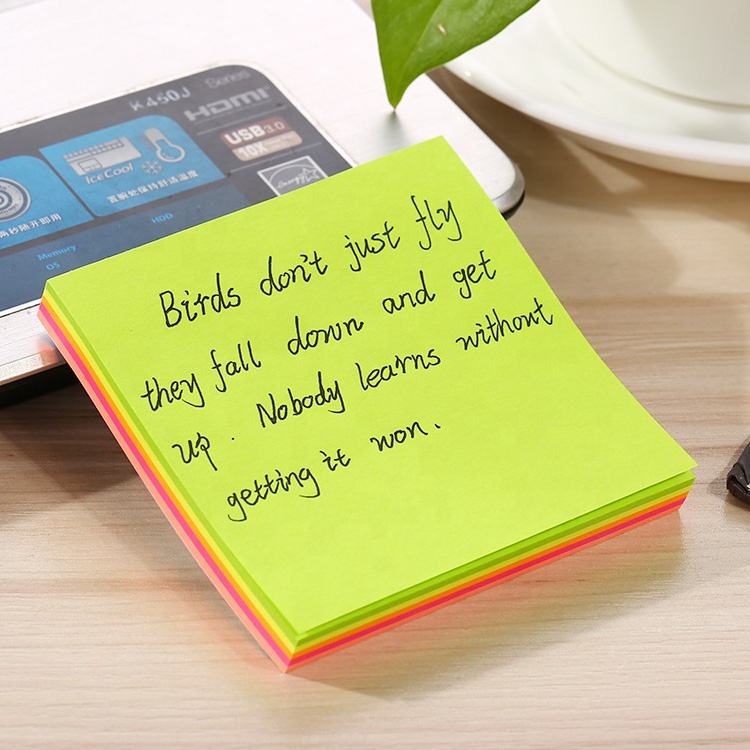 K450J Series
HDMI
USB3.0
10X
IceCool
置腕处保持舒适温度
秒随开即用
HDD
Memory
OS
Birds don't just fly
they fall down and get
up. Nobody learns without
getting it won.